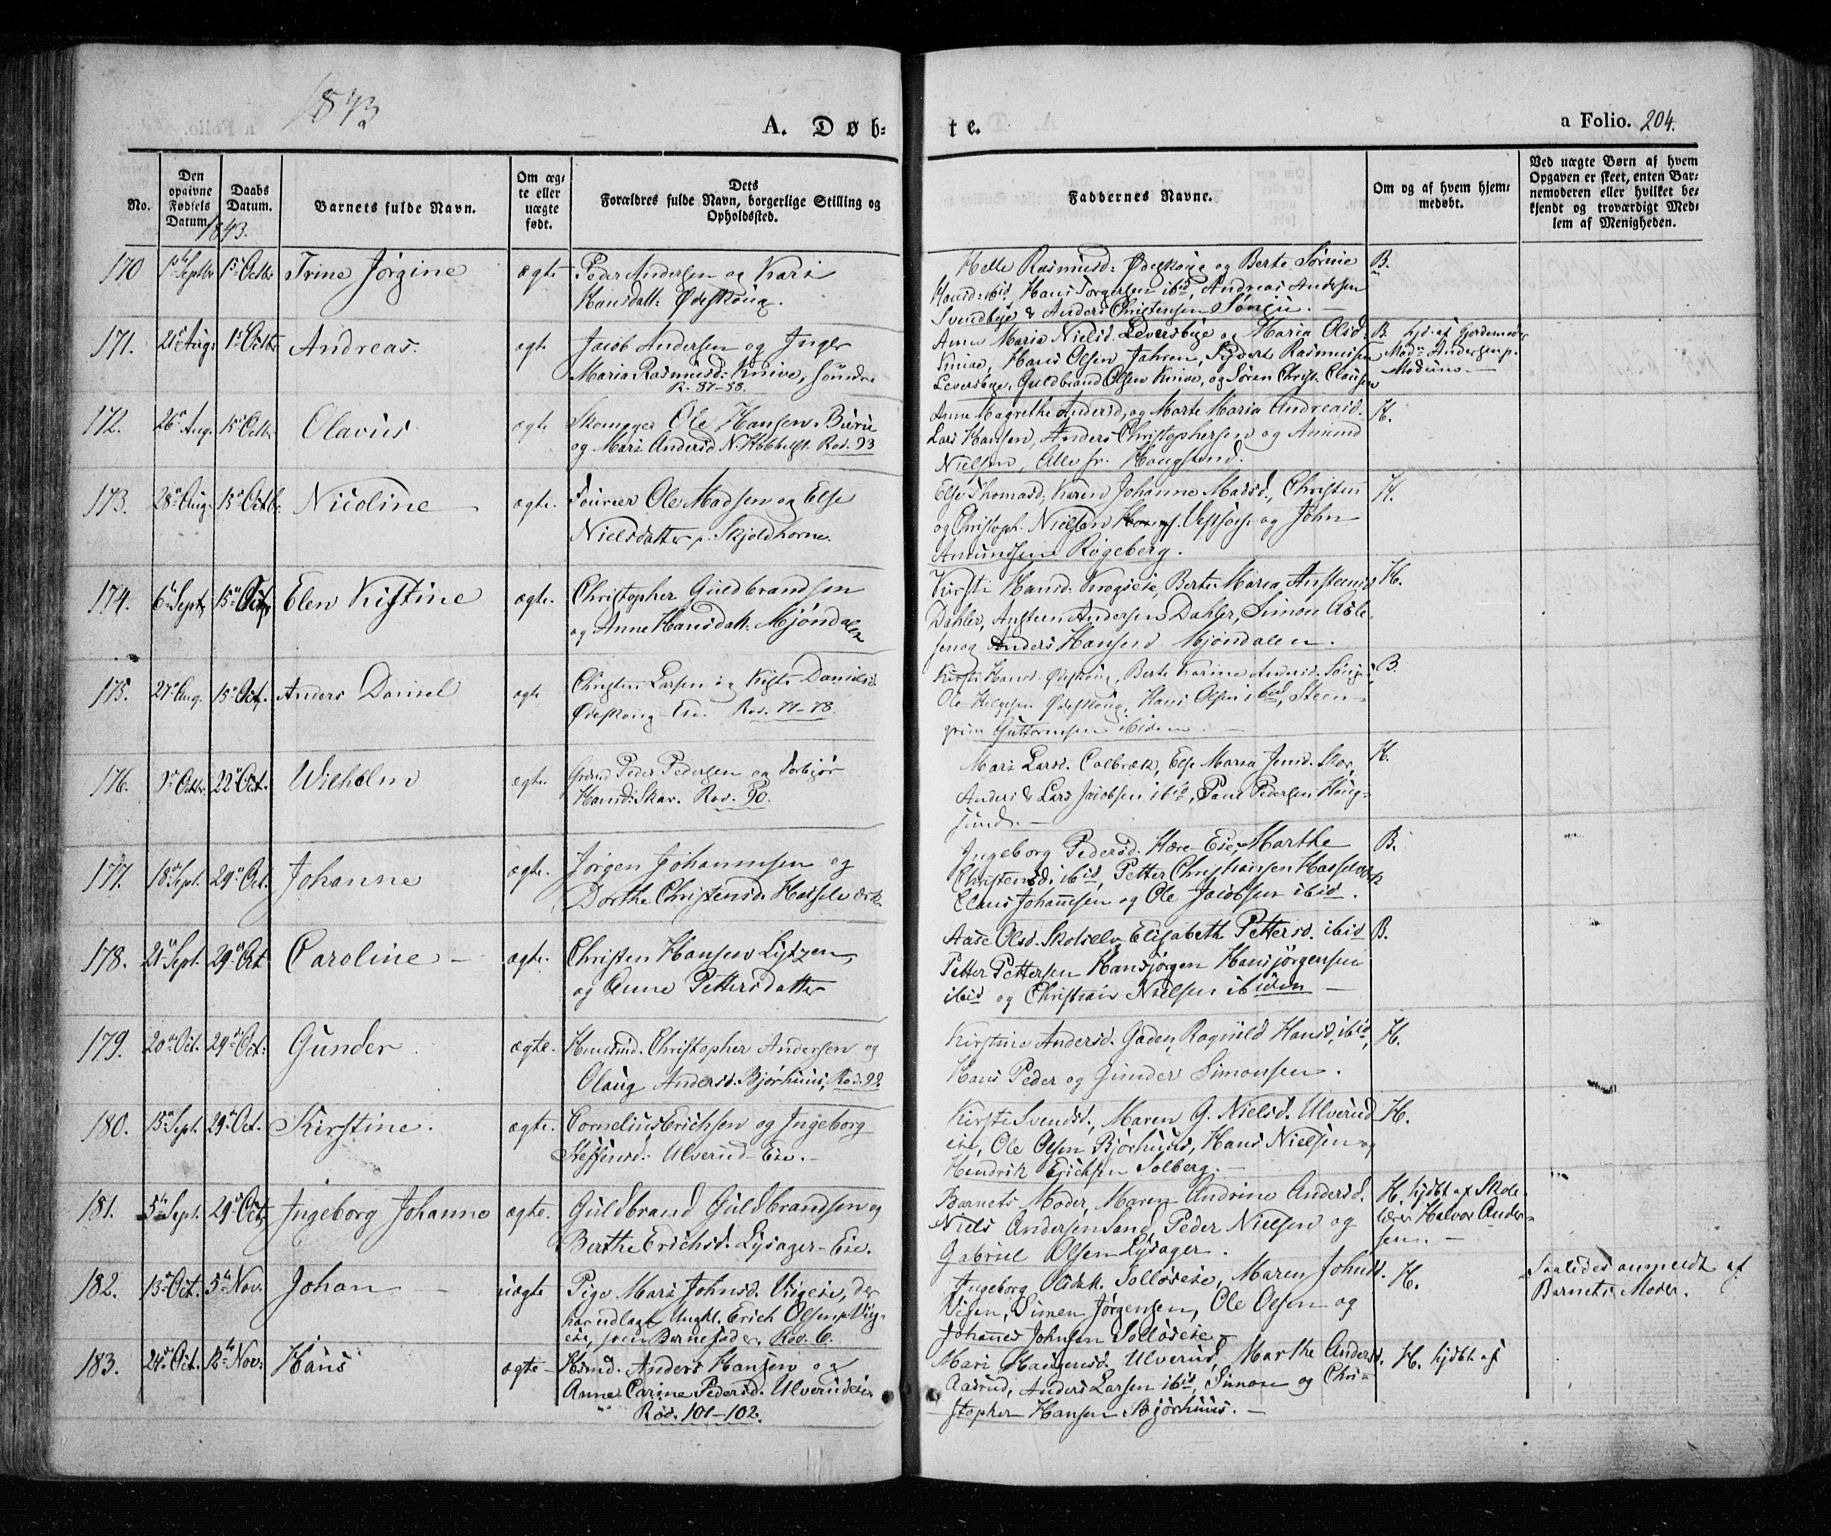 1843
A. Døb-
te.
a Folio. 204.
No.
Den opgivne Fødsels Datum.
Daabs Datum.
1843.
Barnets fulde Navn.
Om ægte eller uægte født.
Dets Forældres fulde Navn, borgerlige Stilling og Opholdssted.
Faddernes Navne.
Om og af hvem hjemmedøbt.
Ved uægte Børn af hvem Opgaven er skeet, enten Barnemoderen eller hvilket bekjendt og troværdigt Medlem af Menigheden.
170 1ste Septbr 15de Octbr Trine Jørgine ægte Peder Andersen og Kari
Hansdatt. Ødeskoug.
Helle Rasmusd: Ødeskoug og Berte Sørine B.
Hansd: ibid, Hans Torgersen ibid, Andreas Andersen
Svendbye & Anders Christensen
171. 21de Aug: 1ste Octbr Andreas. ægte Jacob Andersen og Inger
Maria Rasmusd: Knive, søndre
R. 57-58.
Anne Maria Nielsd. Leversbye og Maria Olsd. B. hjd. af Gjordemoder
Knive, Hans Olsen Jahren, Rasmussen Mad. Andersen p.
Leversbye, Guldbrand Olsen Knive, og Søren Christ. Clausen Modum.
172. 26de Aug. 15de Octbr Olavus ægte. Skomager Ole Hansen Burie
og Mari Andersd N. Hobbelst. Rod. 93
Anne Magrethe Andersd, og Marte Maria Andreasd. H.
Lars Hansen, Anders Christophersen og Amund
Nielsen, Alle fr. Hougsund.
173. 28de Aug: 15de Octb: Nicoline ægte. Fourier Ole Madsen og Else
Nielsdatter p. Skjoldhorne.
Else Thomasd, Karen Johanne Madsd., Christen H.
og Christoph. Nielsen Vestfos. og John
Amundsen Røgeberg.
174. 6te Sept. 15de Oct. Elen Kistine ægte. Christopher Guldbrandsen
og Anne Hansdatt. Mjøndalen
Kirsti Hansd. Krogseie, Berte Maria Anstensd H.
Dahler, Ansteen Andersen Dahler, Simon Asle-
sen og Anders Hansen Mjøndalen.
175. 27de Aug. 15de Oct. Anders Daniel ægte Christen Larsen og Kisti Danielsd
Ødeskoug-Eie. Rod. 77-78.
Kirsti Hansd Ødeskoug, Berte Karine Andersd. B.
Ole Helgesen Ødeskoug, Hans Olsen ibid, Steen-
grim Guttormsen ibidem.
176. 9de Octbr. 22de Oct. Wilhelm ægte. Grdmd Peder Pedersen og Torbjør
Hansd. Skar. Rod. 90.
Mari Larsd. Colbræk, Else Maria Jensd. Skar, H.
Anders & Lars Jacobsen ibid, Paul Pedersen Houg-
sund.
177. 18de Sept. 29de Oct. Johanne ægte. Jørgen Johannesen og
Dorthe Christensd. Hasselværk.
Ingeborg Pedersd. Hære-Eie, Marthe B.
Christensd. ibid, Petter Christiansen Hasselværk
Claus Johannsen og Ole Jacobsen ibid.
178. 21de Sept. 29de Oct Caroline ægte. Christen Hansen Lytzen,
og Anne Pettersdatter
Aase Olsd. Skotselv, Elisabeth Pettersd. ibid B.
Petter Pettersen Hansjørgen Hansjørgensen
ibid og Christian Nielsen ibidem
179. 20de Oct. 29de Oct: Gunder ægte. Huusmd. Christopher Andersen og
Olaug Andersd. Bjørhuus, Rod. 99.
Kirstine Andersd. Gaden, Ragnild Hansd. ibid, H.
Hans Peder og Gunder Simonsen.
180. 15de Sept. 29de Oct. Kirstine. ægte. Cornelius Erichsen og Ingeborg
Steffensd. Ulverud-Eie.
Kirsti Svendsd., Maren G. Nielsd. Ulverud H.
eie, Ole Olsen Bjørhuus, Hans Nielsen og
Hendrik Erichsen Solberg.
181. 5te Sept. 29de Oct. Ingeborg Johanne ægte. Guldbrand Guldbrandsen og
Berthe Erichsd. Lysager-Eie.
Barnets Moder, Maren Andrine Andersd. H. hjdbt af Skole-
Niels Andersen Sand, Peder Nielsen og lærer Halvor Ander-
Gabriel Olsen Lysager. sen.
182. 13de Oct. 5te Nov. Johan uægte Pige Mari Johnsd. Vigeie, der
har udlagt Ungkl. Erich Olsen p. Vig-
eie, som Barnefader. Rod. 6.
Ingeborg Olsdatt. Solløseie, Maren Johnsd. H. Saaledes anmeldt af
Vigen, Simen Jørgensen, Ole Olsen og Barnets Moder.
Johannes Johnsen Solløseie
183. 24de Oct. 12te Nov: Hans ægte Huusmd. Anders Hansen og
Anne Carine Pedersd. Ulverudeie
Rod. 101-102.
Mari Haagensd. Ulverud, Marthe Andersd. H. hjdbt af
Aasrud, Anders Larsen ibid, Simon og Chri-
stopher Hansen Bjørhuus.